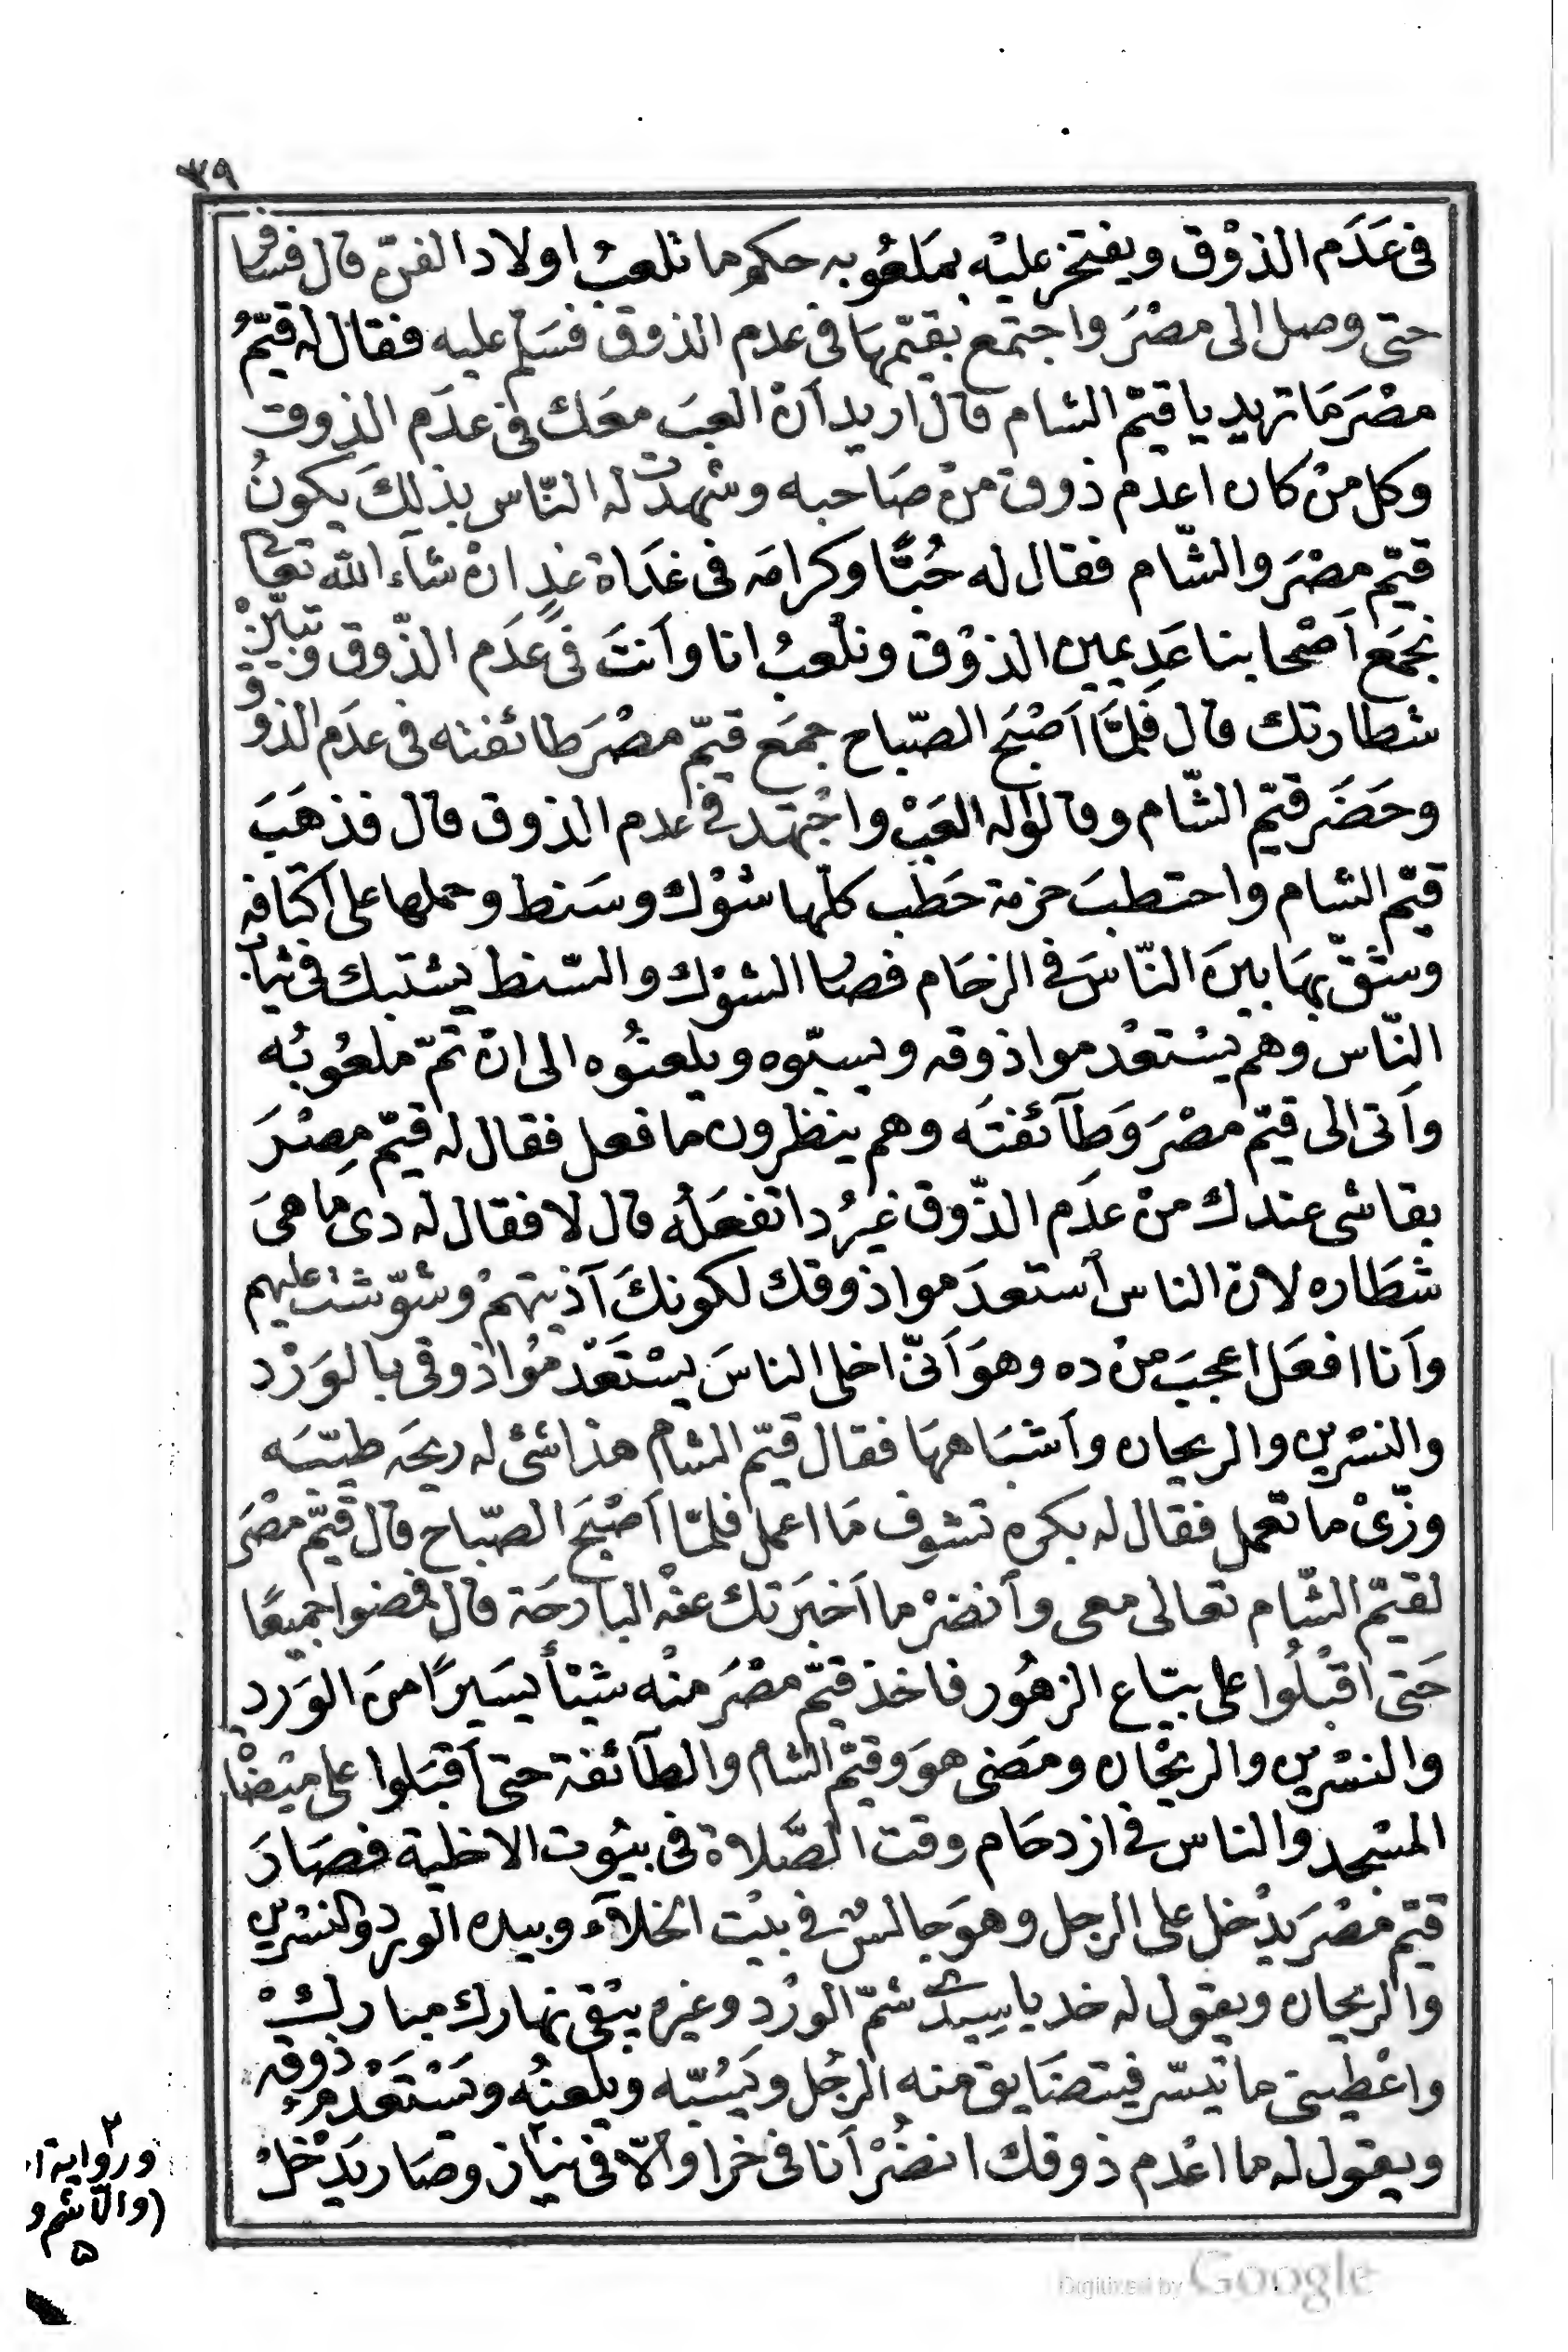 ٣٩
فى عَدَم الذوْق ويفتخر عليْه بمَلعُوبه حكم ما تلعبُ اولاد الفنّ قال فسافر
حتى وصل الى مصْرَ واجْتمع بقيّمهَا فى عدم الذوق فسَلم عليه فقال له قيّمُ
مصْرَ مَا تريد يا قيّم الشام قال اريد اَنْ العبَ معَك فى عدَم الذوق
وكل منْ كان اعدم ذوق منْ صَاحبه وشهدت له النّاس بذلِكَ يكونُ
قيّم مصْرَ والشّام فقال له حُبًّا وكرامَه فى غَدَاة غدٍ انْ شآء الله تعالى
نجمَع اَصْحابنا عَدِيمين الذوْق ونلْعبُ انا واَنتَ فى عَدَم الذّوق وتبيّنْ
شطارتك قال فلمَّا اَصْبَح الصّباح جمَع قيّم مصْرَ طائفته فى عدَم الذوق
وحَضَر قيّم الشّام وقالوا له العَبْ واجْتهد فى عدم الذوق قال فذهَبَ
قيّم الشام واحتطبَ حزمة حَطب كلّها شوْك وسَنط وحملها على اكتافه
وشقّ بهَا بينَ النّاسَ فى الزحَام فصار الشوْك والسّنط يشتبك فى ثياب
النّاس وهم يسْتعْدموا ذوقه ويسبّوه ويلعنُوه الى انْ تمّ ملعُوبُه
واَتى الى قيّم مصْرَ وَطآئفتَه وهم ينظرون ما فعل فقال له قيّم مِصْرَ
بقا شى عندك منْ عدَم الذّوق غيْرُ دا تفعَلُه قال لا فقال له دى ما هىَ
شطَاره لانْ الناس اَستعدَموا ذوقك لكونكَ آذيتهمْ وشوّشت عليهم
واَنا افعَل اعجبَ منْ ده وهوَ اَنّى اخلى الناسَ يسْتَعدْمُوا ذوقى بالوَرْد
والنسْرين والريحان واَشبَاههَا فقال قيّم الشام هذا شئ له ريحَه طيّبَه
وزّىْ ما تعمل فقال له بكره تشوف مَا اعمل فلمّا اَصْبَحَ الصّباح قال قيّم مصْرَ
لقيّم الشّام تعالى معى واَنضرْ ما اَخبَرتك عنْه البارحَة قال فمضوا جميعًا
حَتى اَقْبلُوا على بيّاع الزهُور فاخذ قيّم مصْرَ منْه شيْئاً يسَيرًا منَ الوَرد
والنسْرين والريْحَان ومَضى هوَ وقيّم الشام والطآئفة حتى اَقبَلوا على ميْضَاة
المسْجد والناس فى ازدحَام وقت الصَّلاة فى بيُوت الاخلية فصَارَ
قيّم مصْرَ يدْخل على الرجل وهوَ جالسٌ فى بيْت الخلآء وبيده الورد والنسْرين
والريحان ويقول له خد يا سِيدى شمّ الورْد وغيره يبْقى نهارك مبارك
واعْطينى ما تيَسّر فيتضَايق منه الرجُل ويَسُبّه ويلعنُه ويَسْتَعْدم ذوقه
ويقول له ما اعْدم ذوقك انضُرْ اَنا فى خرا والّا فى نياز وصَار يَدْخلْ
٢
ورواية
(والّا شم و
٥
Digitized by Google